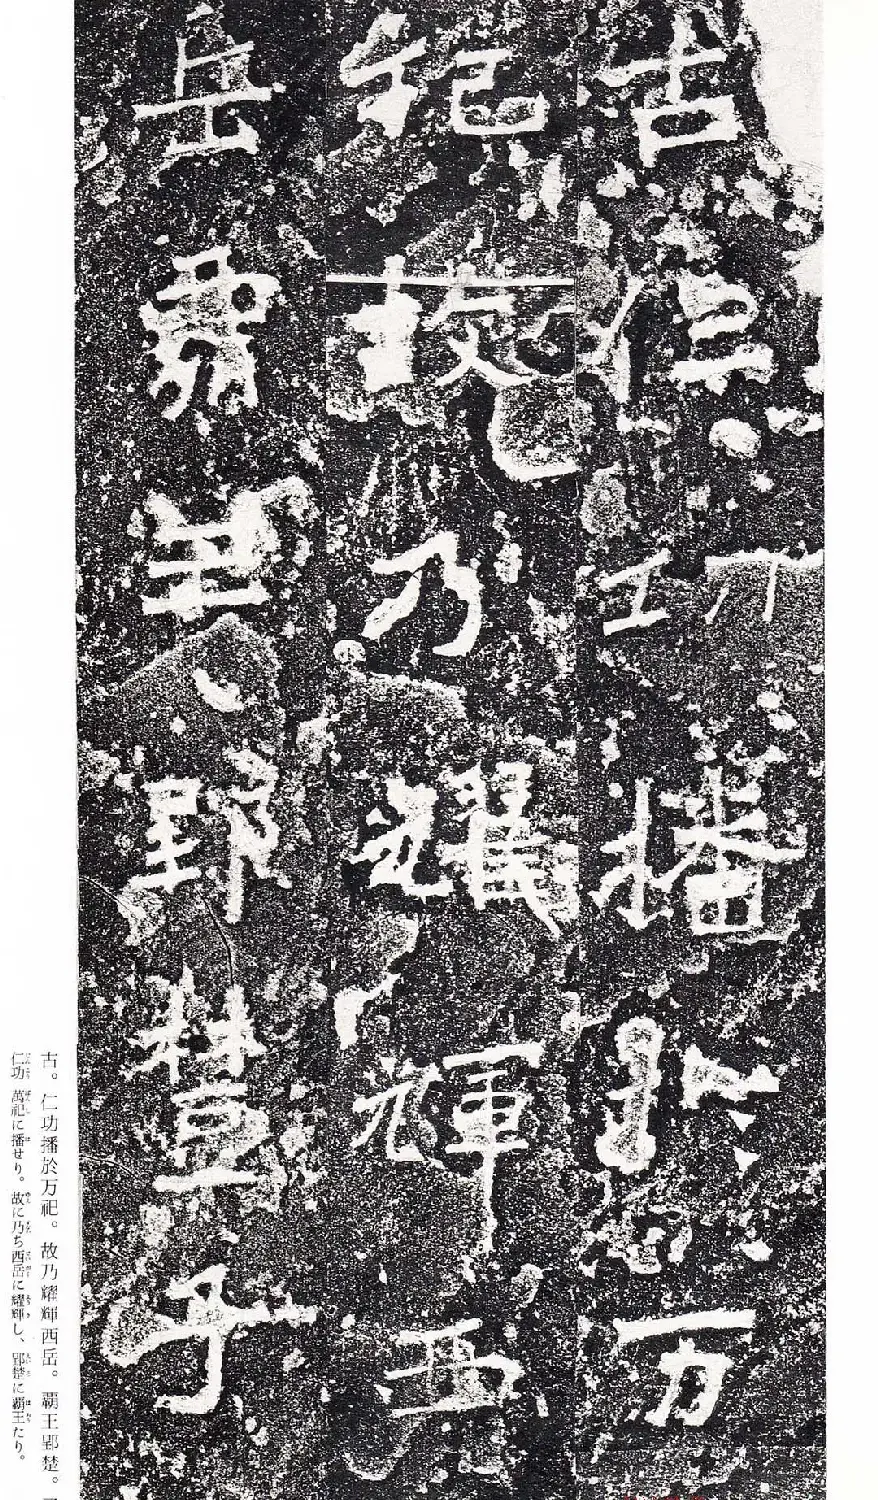 古仁功播於万
祀故乃耀輝西
岳霸王郢楚子
古。仁功播於万祀。故乃耀輝西岳。覇王郢楚。
仁功 萬祀に播せり。故に乃ち西岳に耀輝し、郢楚に覇王たり。